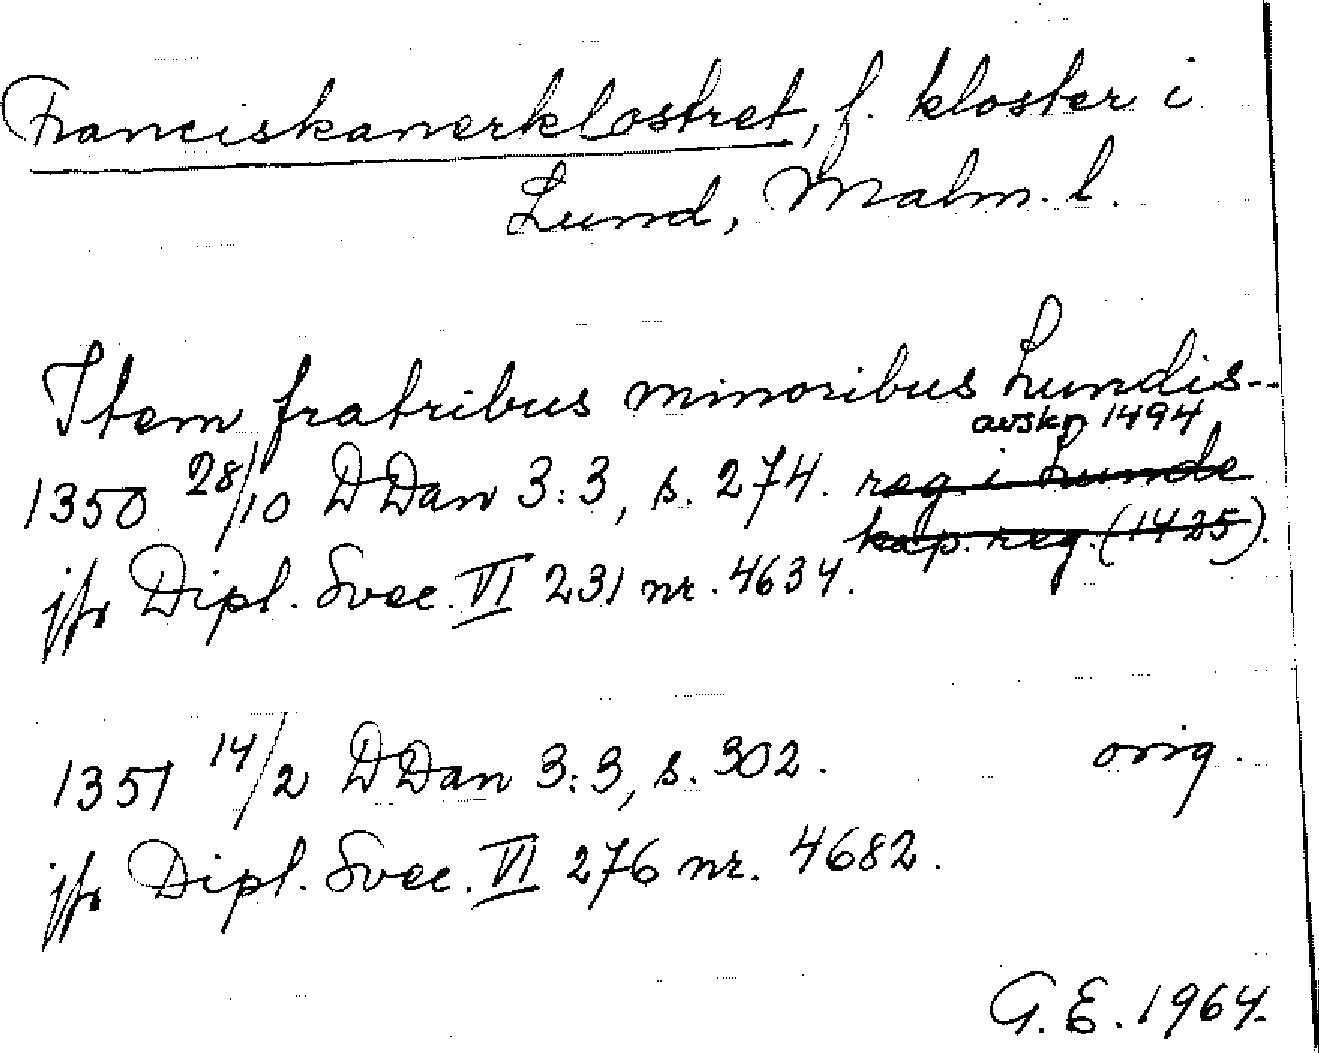 Franciskanerklostret, f. kloster i
Lund, Malm. l.
Item fratribus minoribus Lundis--
avskr 1494
1350 28/10 DDan 3:3, s. 274. reg. i Lunde
kap. reg. (1425).
jfr Dipl. Svec. VI 231 nr. 4634.
1351 14/2 DDan 3:3, s. 302. orig.
jfr Dipl. Svec. VI 276 nr. 4682.
G. E. 1964.